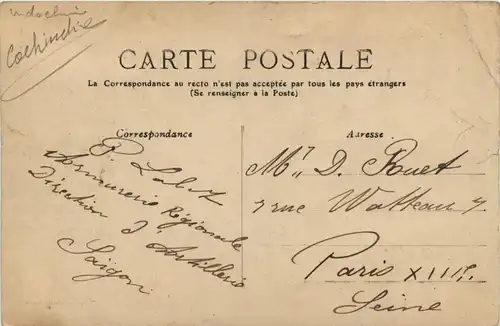 indochine
Cochinchine
CARTE POSTALE
La Correspondance au recto n'est pas acceptée par tous les pays étrangers
(Se renseigner à la Poste)
Correspondance
P. Lalot
Armurerie Régionale
Direction d'Artillerie
Saïgon
Adresse
Mr D. Rouet
7 rue Watteau 7
Paris XIIIe
Seine